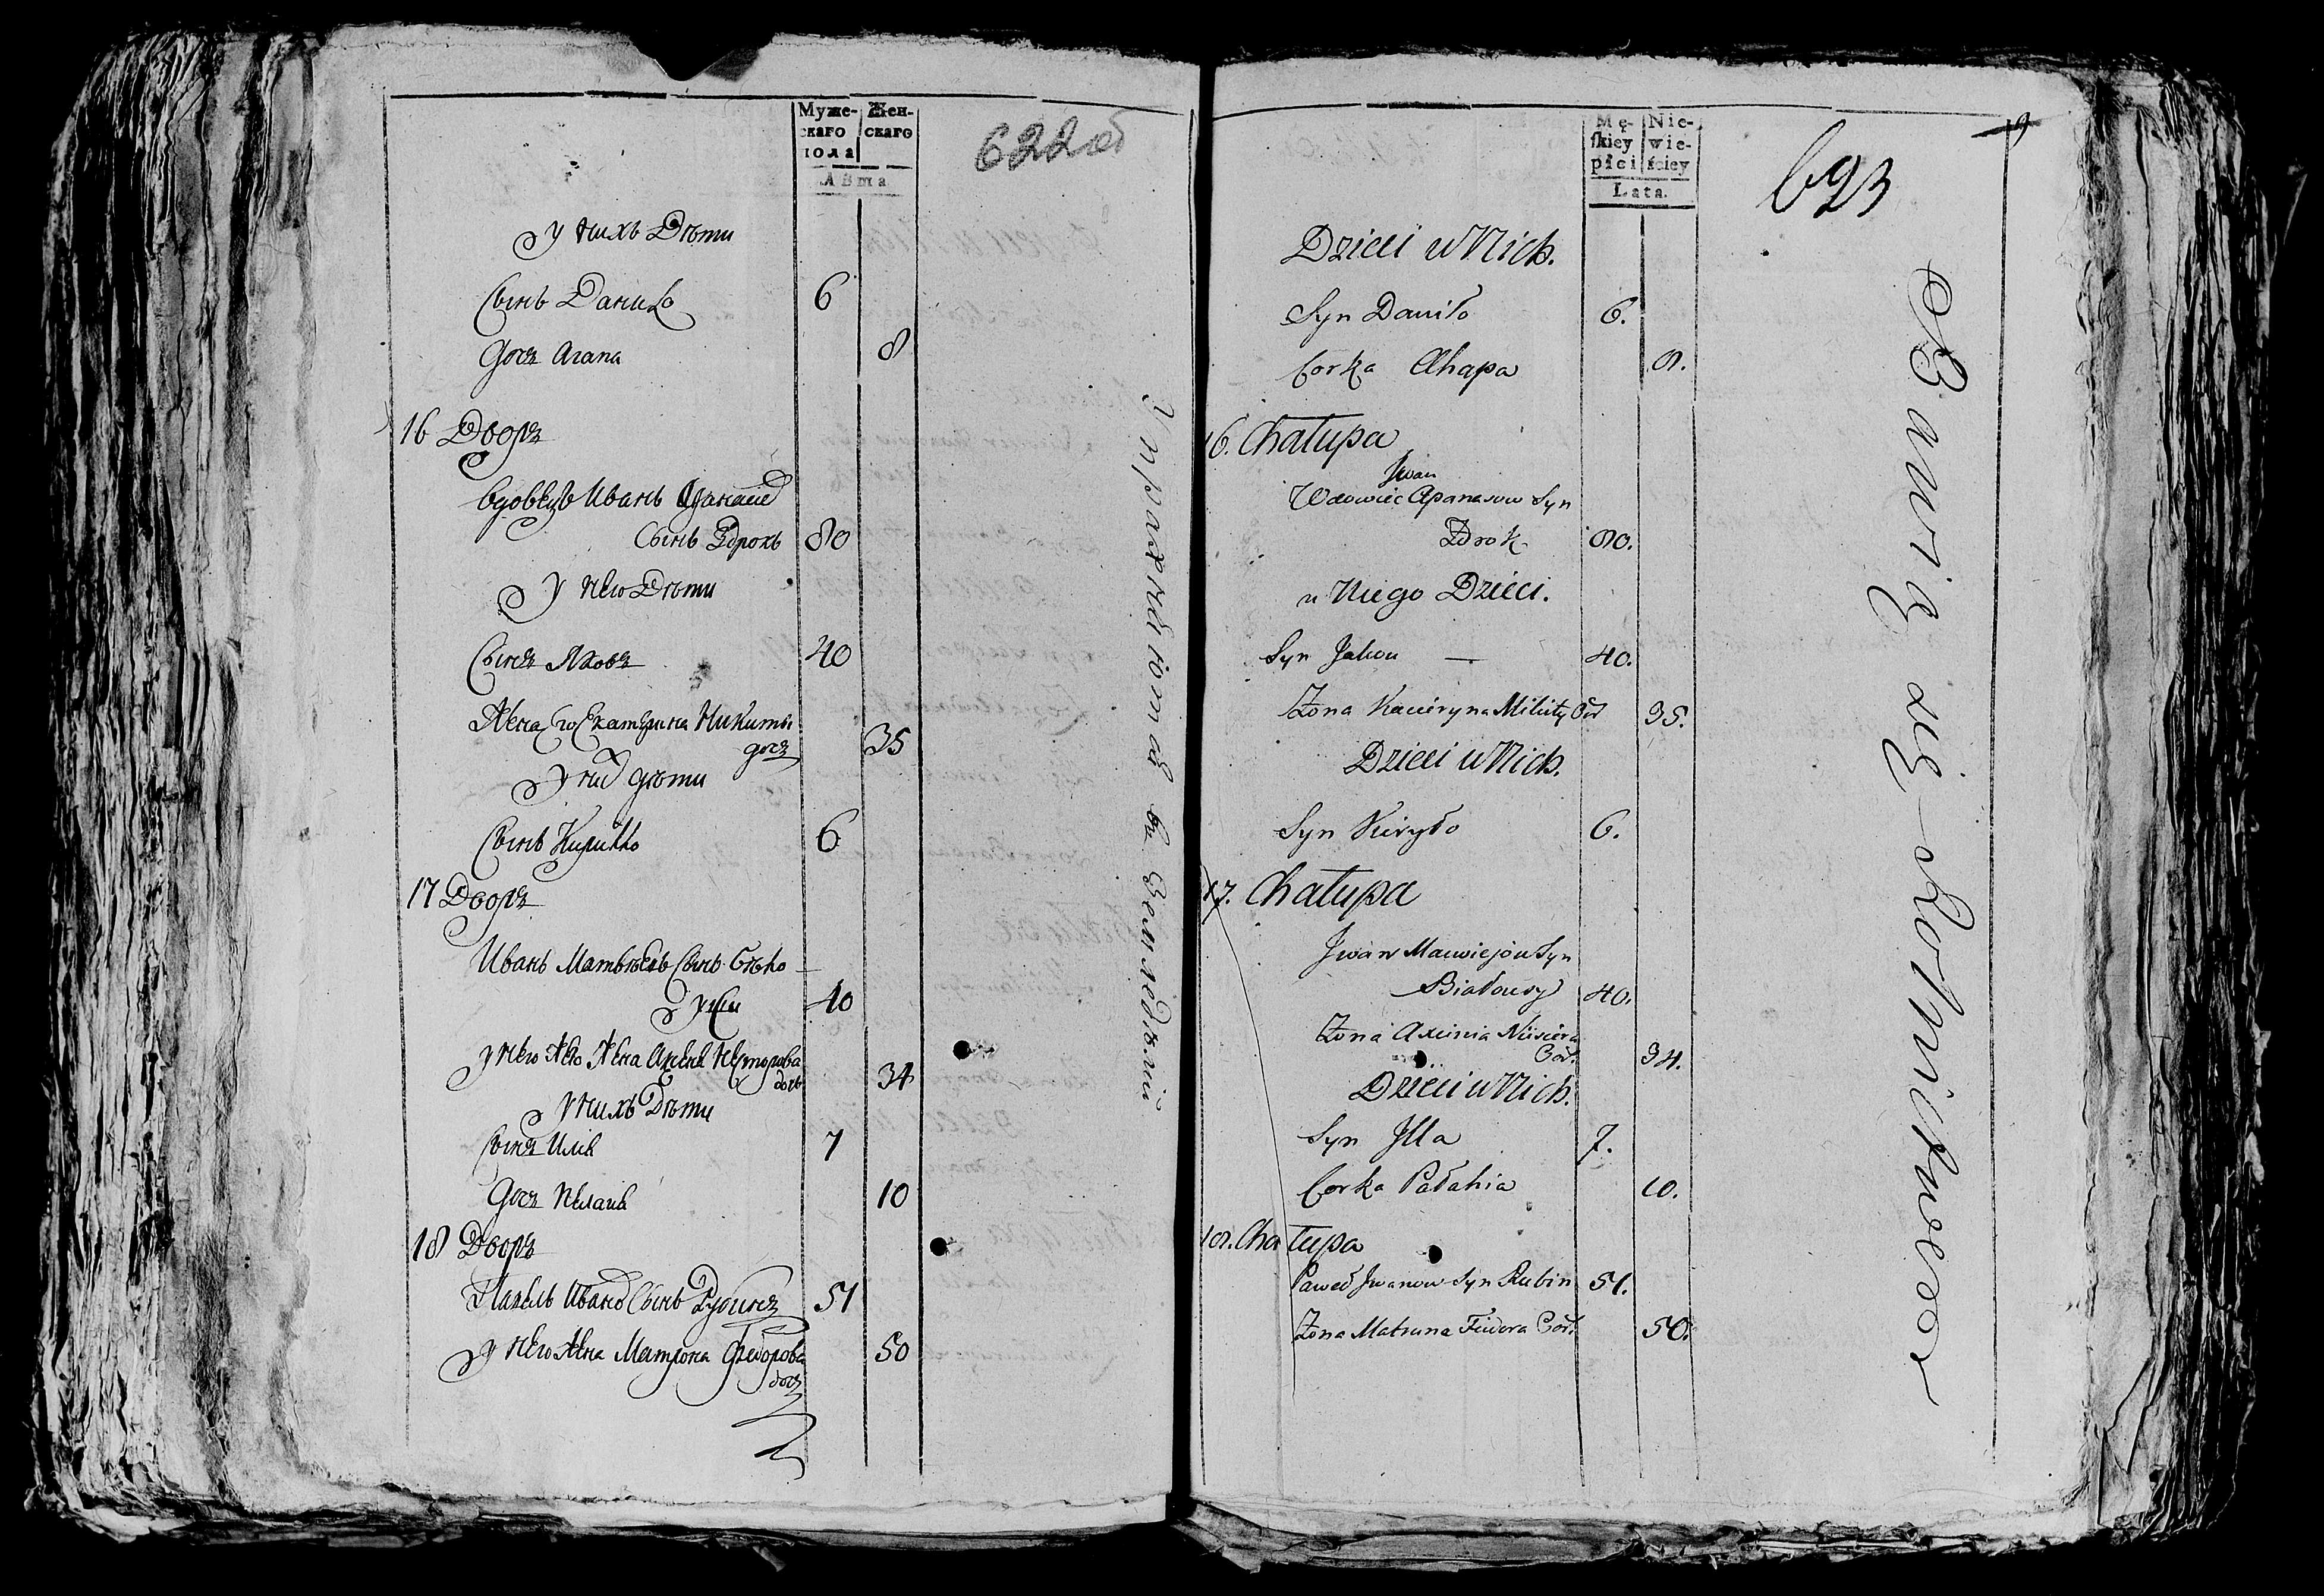 Муже-
скаго
пола
Жен-
скаго
Лѣта
622об
у нихъ Дѣти
Сынъ Данило 6
Дочь Агапа 8
16 Дворъ
Вдовецъ Иванъ
Сынъ Здрокъ 80
У него Дѣти
Сынъ Яковъ 40
Жена его Екатерина Никиты
дочь 35
У ни дѣти
Сынъ Кирилло 6
17 Дворъ
Иванъ Матвѣевъ Сынъ Бѣло
усы 40
у него Жена Нестерова
дочь 34
У нихъ Дѣти
Сынъ Илья 7
Дочь Пелагея 10
18 Дворъ
Павелъ Иванов Сынъ Рубинъ 51
у него Жена Матрона Федорова
дочь 50
Упражняются въ Земледѣліи
Mę-
skiey
płci
Nie-
wie-
ściey
Lata.
623
9
Dzieci u Nich.
Syn Daniło 6.
Corka Ahapa 8.
16. Chałupa
Jwan
Wdowiec Apanasow Syn
Zdrok 80.
u Niego Dzieci.
Syn Jakow — 40.
Żona Kacieryna Mikity Cor 35.
Dzieci u Nich.
Syn Kiryło 6.
17. Chałupa
Jwan Maciejow Syn
Białousy 40.
Żona Axinia Niściera
Cor. 34.
Dzieci u Nich.
Syn Jlla 7.
Corka Pałahia 10.
18. Chałupa
Paweł Jwanow Syn Rubin 51.
Żona Matruna Fiedora Cor. 50.
Bawią się Rolnictwem